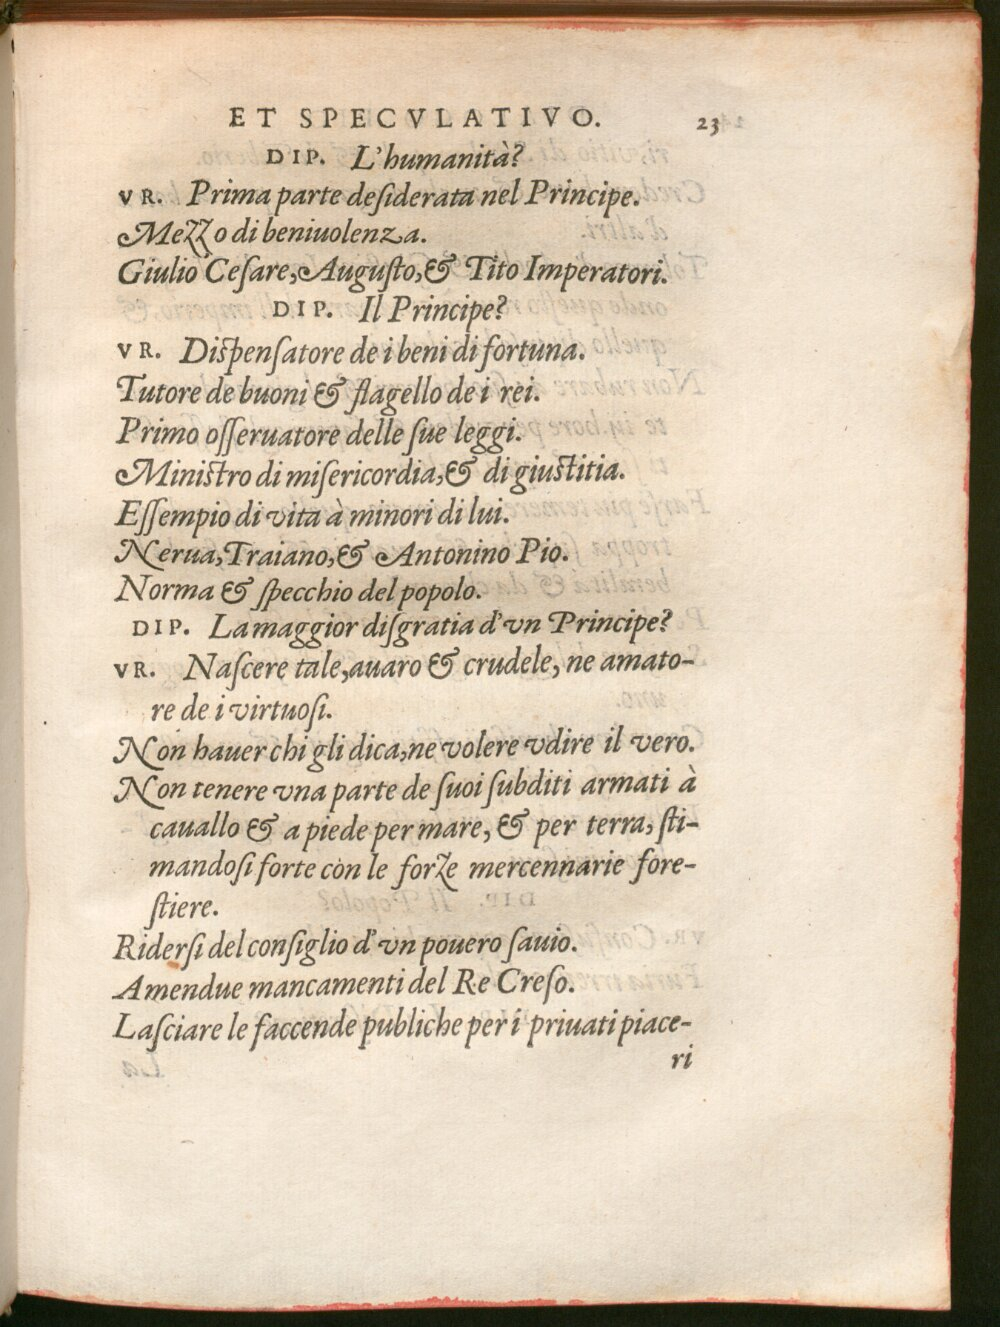 ET SPECVLATIVO. 23
DIP. L'humanità?
VR. Prima parte deſiderata nel Principe.
Mezzo di beniuolenza.
Giulio Ceſare, Auguſto, & Tito Imperatori.
DIP. Il Principe?
VR. Diſpenſatore de i beni di fortuna.
Tutore de buoni & flagello de i rei.
Primo oſſeruatore delle ſue leggi.
Miniſtro di miſericordia, & di giuſtitia.
Eſſempio di vita à minori di lui.
Nerua, Traiano, & Antonino Pio.
Norma & ſpecchio del popolo.
DIP. La maggior diſgratia d'vn Principe?
VR. Naſcere tale, auaro & crudele, ne amato-
re de i virtuoſi.
Non hauer chi gli dica, ne volere vdire il vero.
Non tenere vna parte de ſuoi ſubditi armati à
cauallo & a piede per mare, & per terra, ſti-
mandoſi forte con le forze mercennarie fore-
ſtiere.
Riderſi del conſiglio d'vn pouero ſauio.
Amendue mancamenti del Re Creſo.
Laſciare le faccende publiche per i priuati piace-
ri